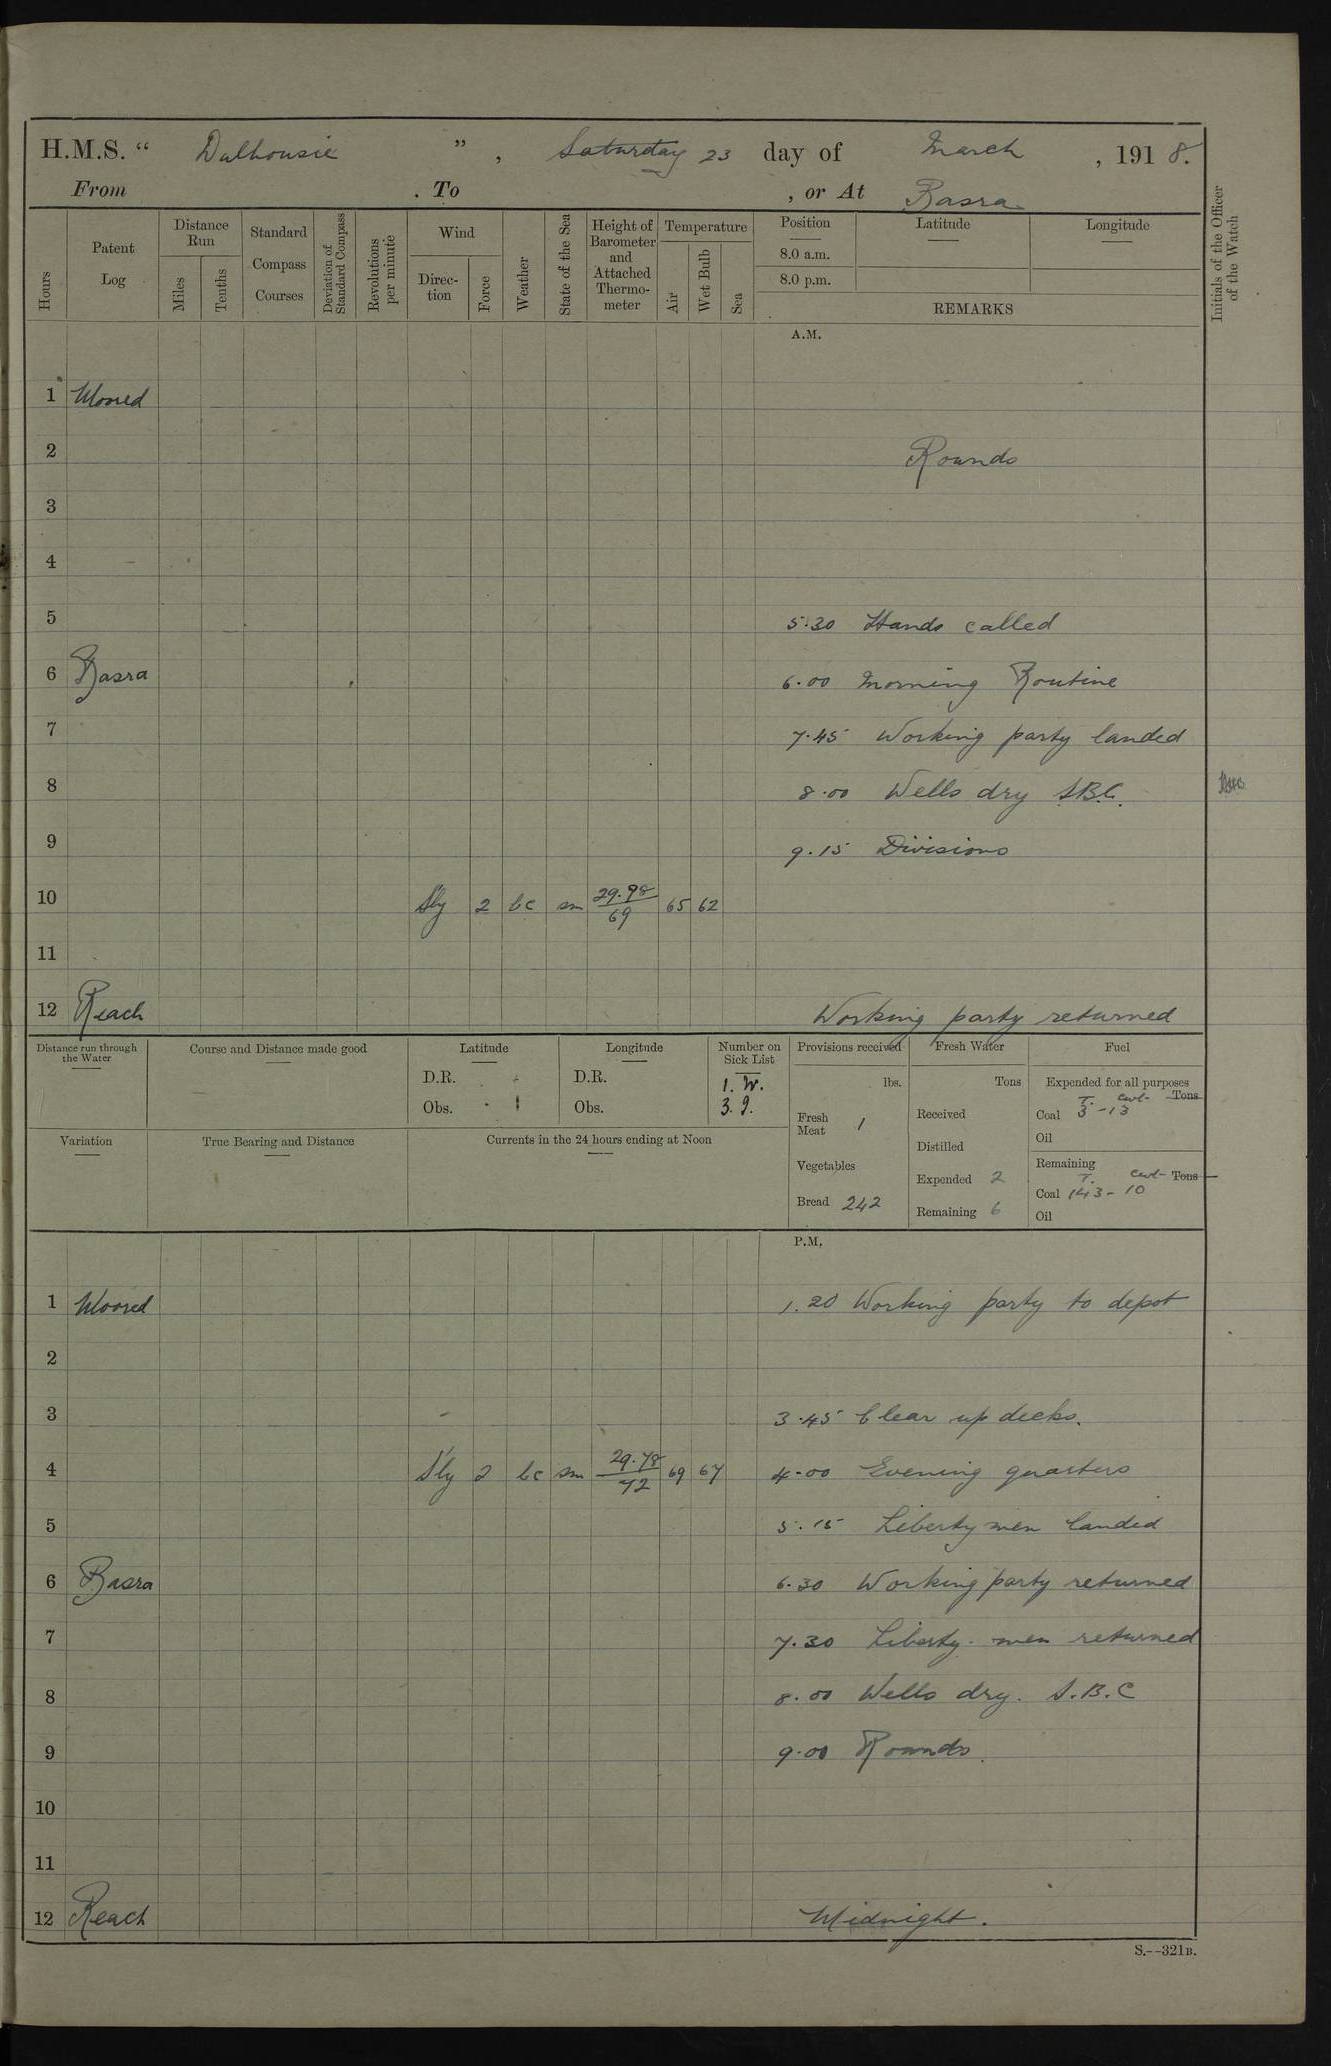 H.M.S. “ Dalhousie ” , Saturday 23 day of March , 191 8.
From . To , or At Basra
Hours
Patent Log
Distance Run
Miles
Tenths
Standard Compass Courses
Deviation of Standard Compass
Revolutions per minute
Wind
Direction
Force
Weather
State of the Sea
Height of Barometer and Attached Thermometer
Temperature
Air
Wet Bulb
Sea
Position Latitude Longitude
8.0 a.m.
8.0 p.m.
REMARKS
Initials of the Officer of the Watch
A.M.
1 Moored
2 Rounds
3
4
5 5.30 Hands called
6 Basra 6.00 Morning Routine
7 7.45 Working party landed
8 8.00 Wells dry S.B.C.
9 9.15 Divisions
10 S'ly 2 bc sm 29.98 / 69 65 62
11
12 Reach Working party returned
Distance run through the Water
Course and Distance made good
Latitude
D.R.
Obs.
Longitude
D.R.
Obs.
Number on Sick List
1. W.
3. I.
Variation
True Bearing and Distance
Currents in the 24 hours ending at Noon
Provisions received
lbs.
Fresh Meat 1
Vegetables
Bread 242
Fresh Water
Tons
Received
Distilled
Expended 2
Remaining 6
Fuel
Expended for all purposes
T. cwt Tons
Coal 3 - 13
Oil
Remaining
T. cwt Tons
Coal 143 - 10
Oil
P.M.
1 Moored 1.20 Working party to depot
2
3 3.45 Clear up decks.
4 S'ly 2 bc sm 29.78 / 72 69 67 4.00 Evening quarters
5 5.15 Liberty men landed
6 Basra 6.30 Working party returned
7 7.30 Liberty men returned
8 8.00 Wells dry. S.B.C
9 9.00 Rounds.
10
11
12 Reach Midnight.
S.--321B.